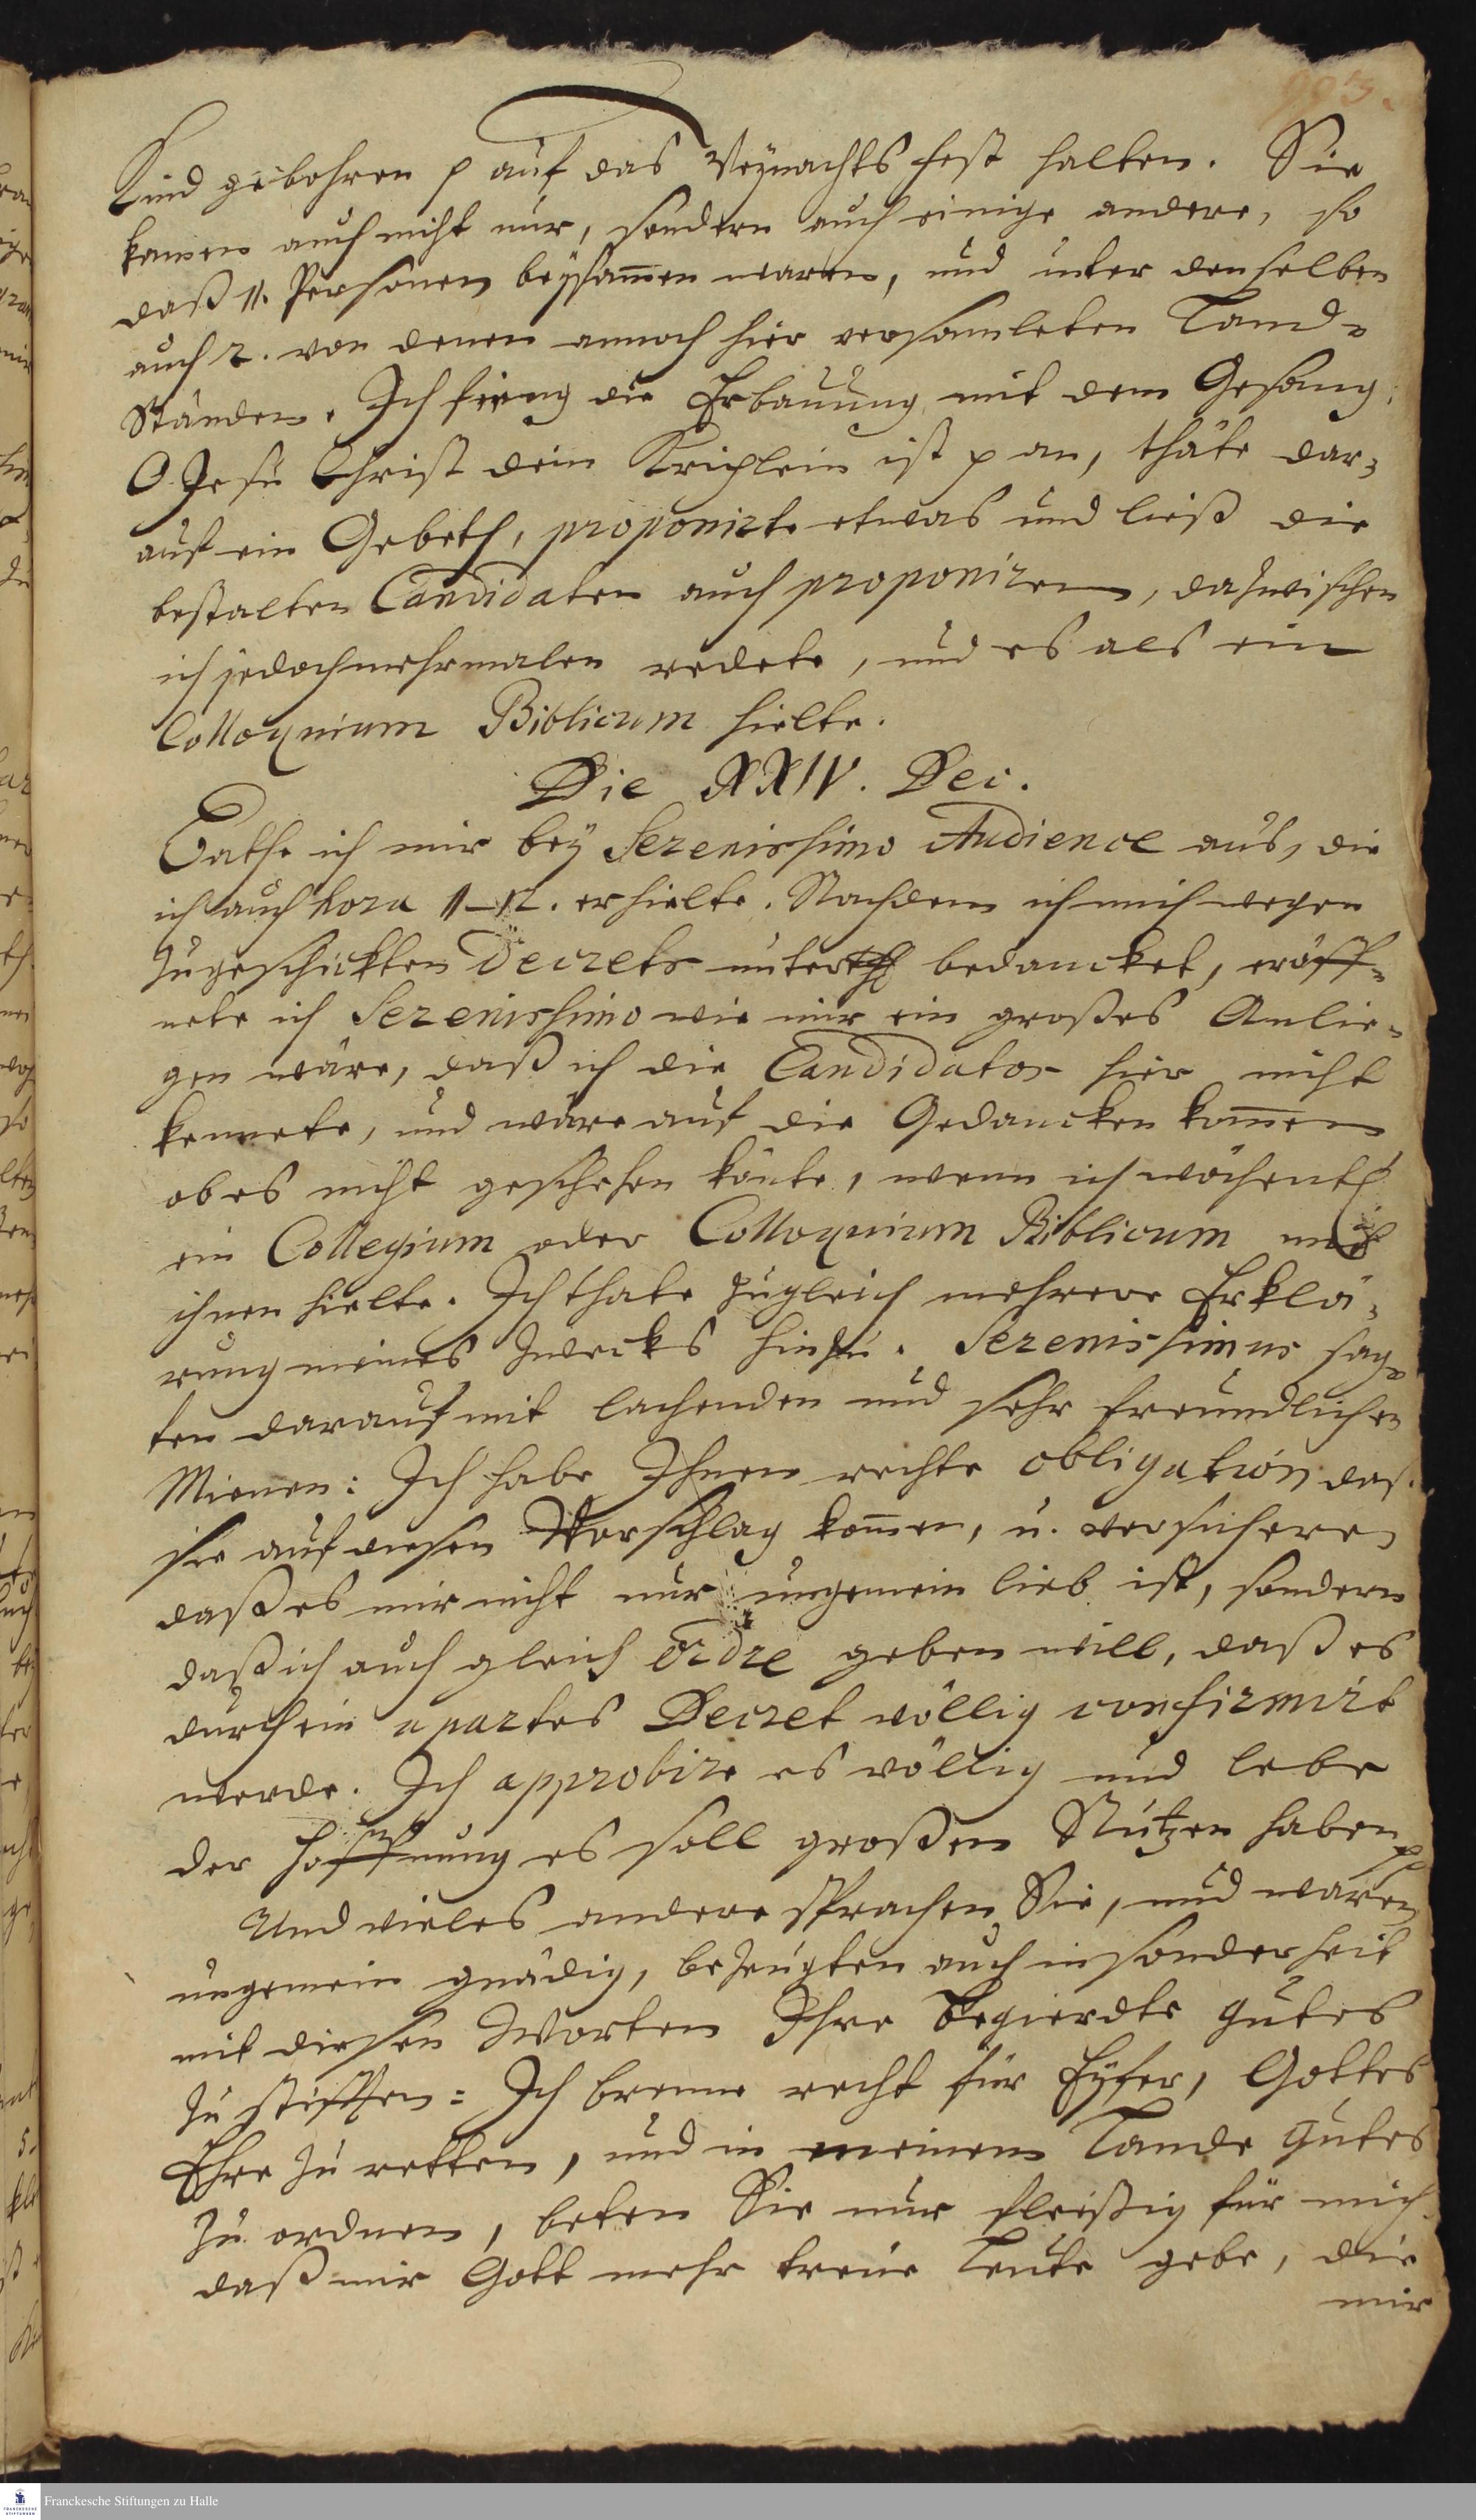 903.
Kind gebohren p auf das Weynachts fest halten. Sie
kamen auch nicht nur, sondern auch einige andere, so
daß 11. Personen beysam̅en waren, und unter denselben
auch 2. von denen annoch hier versamleten Land-
Ständen. Ich fieng die Erbauung mit dem Gesang:
O Jesu Christ dein Kriplein ist p an, thäte dar-
auf ein Gebeth, proponirte etwas und ließ die
bestalten Candidaten auch proponiren, dazwischen
ich jedoch mehrmalen redete, und es als ein
Colloquium Biblicum hielte.
Die XXIV. Dec.
Bathe ich mir bey Serenissimo Audience aus, die
ich auch hora 11–12. erhielte. Nachdem ich mich wegen
zugeschickten Decrets unterth bedancket, eröff-
nete ich Serenissimo wie mir ein großes Anlie-
gen wäre, daß ich die Candidatos hier nicht
kennete, und wäre auf die Gedancken kom̅en
ob es nicht geschehen könte, wenn ich wöchentl
ein Collegium oder Colloquium Biblicum mit
ihnen hielte. Ich thate zugleich mehrere Erklä-
rung meines Zwecks hinzu. Serenissimus sag-
ten darauf mit lachenden und sehr freundlichen
Mienen: Ich habe Ihnen rechte obligation, daß
sie auf diesen Vorschlag kom̅en, u. versichere
daß es mir nicht nur ungemein lieb ist, sondern
daß ich auch gleich Ordre geben will, daß es
durch ein apartes Decret völlig confirmirt
werde. Ich approbire es völlig und lebe
der Hoffnung es soll großen Nutzen haben p
Und vieles andere sprachen Sie, und waren
ungemein gnädig, bezeugten auch insonderheit
mit diesen Worten Ihre Begierdte gutes
zu stifften: Ich brenne recht für Eyfer, Gottes
Ehre zu retten, und in meinem Lande gutes
zu ordnen, beten Sie nur fleißig für mich
daß mir Gott mehr treue Leute gebe, die
mir
Franckesche Stiftungen zu Halle